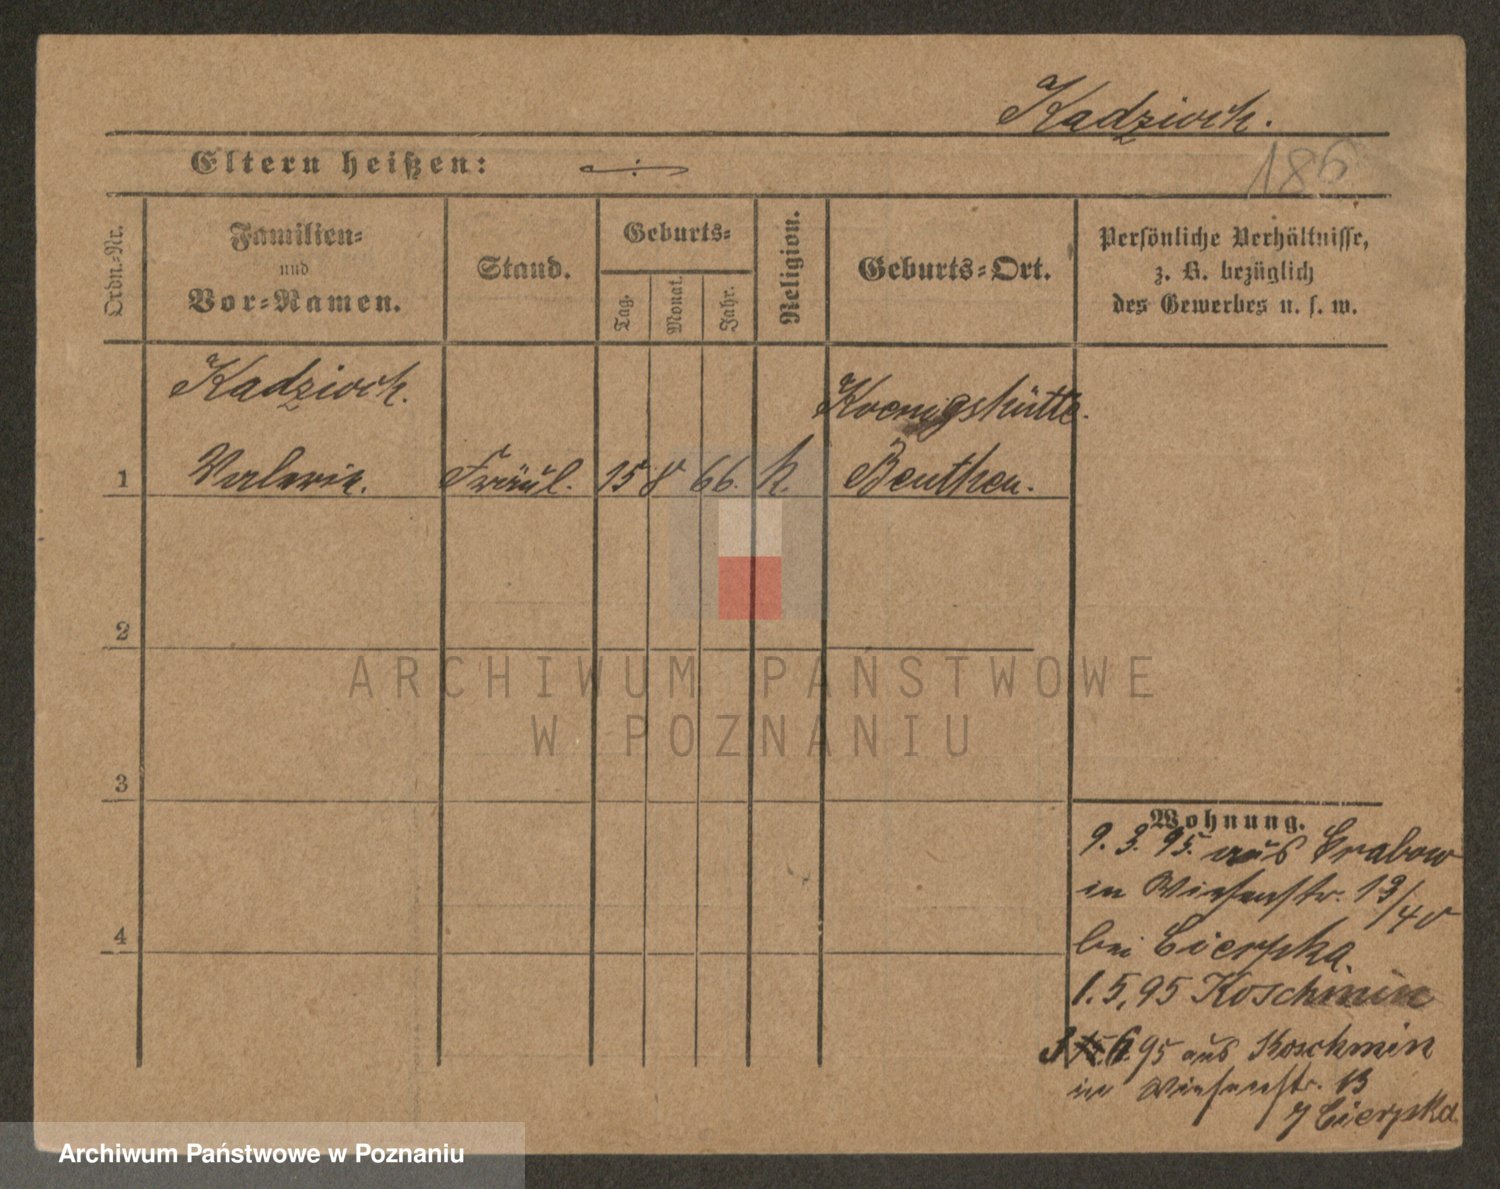 Kadzioch.
186
Eltern heißen: ÷
Ordn.-Nr.
Familien-
und
Vor-Namen.
Stand.
Geburts-
Tag.
Monat.
Jahr.
Religion.
Geburts-Ort.
Persönliche Verhältnisse,
z. B. bezüglich
des Gewerbes u. s. w.
Kadzioch.
Koenigshütte.
1 Valerie. Fräul. 15 8 66. k. Beuthen.
2
3
4
Wohnung.
9. 3. 95. aus Grabow
in Wiesenstr. 13/40
bei Cierpka.
1. 5. 95 Koschmin
6. 95 aus Koschmin
in Wiesenstr. 13
Cierpka
ARCHIWUM PAŃSTWOWE
W POZNANIU
Archiwum Państwowe w Poznaniu